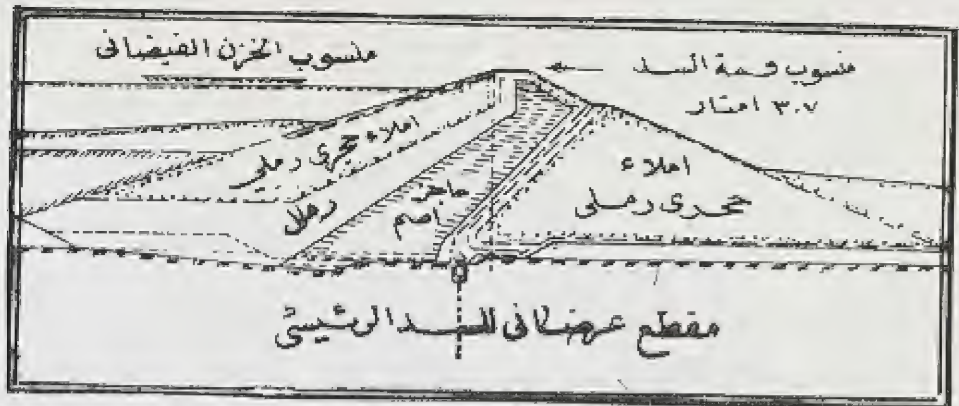 منسوب الخزن الفيضانى
منسوب قمة السد
٣٠٧ امتار
املاء حجري رملي
رمل
حاجز
اصم
املاء
حجرى رملى
مقطع عرضانى للسد الرئيسى